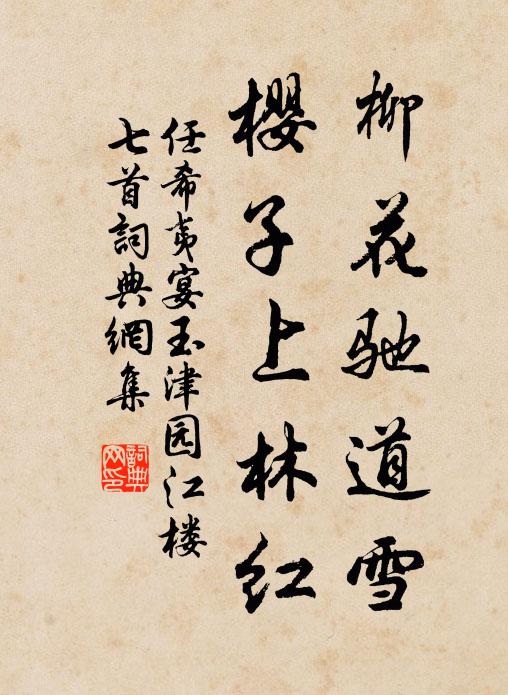 柳花驰道雪
樱子上林红
任希夷宴玉津园江楼
七首詞典網集
詞典网印